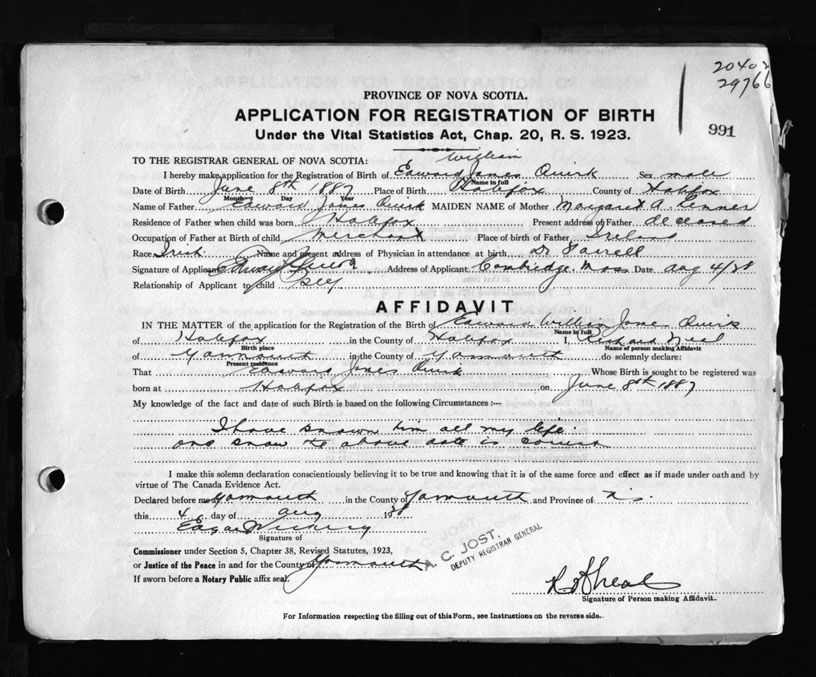 20402
29766
991
PROVINCE OF NOVA SCOTIA.
APPLICATION FOR REGISTRATION OF BIRTH
Under the Vital Statistics Act, Chap. 20, R. S. 1923.
TO THE REGISTRAR GENERAL OF NOVA SCOTIA: William
I hereby make application for the Registration of Birth of Edward James Quirk Sex male
Name in full
Date of Birth June 8th 1887 Place of Birth Halifax County of Halifax
Month Day Year
Name of Father Edward James Quirk MAIDEN NAME of Mother Margaret A.
Residence of Father when child was born Halifax Present address of Father deceased
Occupation of Father at Birth of child Merchant Place of birth of Father Ireland
Race Irish Name and present address of Physician in attendance at birth Dr. Farrell
Signature of Applicant Address of Applicant Cambridge, Mass Date Aug 4/38
Relationship of Applicant to child Self
AFFIDAVIT
IN THE MATTER of the application for the Registration of the Birth of Edward William James Quirk
Name in full
of Halifax in the County of Halifax I,
Birth place Name of person making Affidavit
of Yarmouth in the County of Yarmouth do solemnly declare:
Present residence
That Edward James Quirk Whose Birth is sought to be registered was
born at Halifax on June 8th 1887
My knowledge of the fact and date of such Birth is based on the following Circumstances :—
I have known him all my life
and know the above date is correct
I make this solemn declaration conscientiously believing it to be true and knowing that it is of the same force and effect as if made under oath and by
virtue of The Canada Evidence Act.
Declared before me at Yarmouth in the County of Yarmouth and Province of N.S.
this 4 day of Aug 1938
Signature of
Commissioner under Section 5, Chapter 38, Revised Statutes, 1923,
or Justice of the Peace in and for the County of Yarmouth
If sworn before a Notary Public affix seal.
A. C. JOST,
DEPUTY REGISTRAR GENERAL
Signature of Person making Affidavit.
For Information respecting the filling out of this Form, see Instructions on the reverse side.